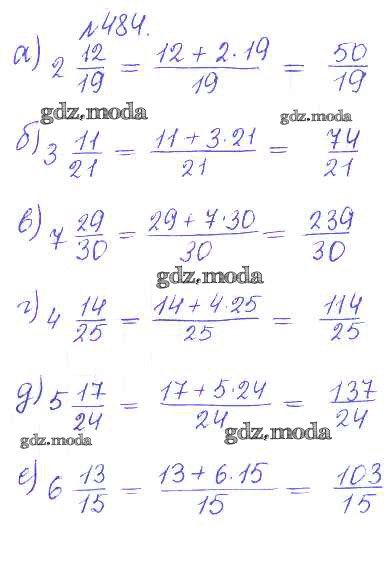 №484.
а) 2 12/19 = (12 + 2·19)/19 = 50/19
gdz.moda gdz.moda
б) 3 11/21 = (11 + 3·21)/21 = 74/21
в) 7 29/30 = (29 + 7·30)/30 = 239/30
gdz.moda
г) 4 14/25 = (14 + 4·25)/25 = 114/25
д) 5 17/24 = (17 + 5·24)/24 = 137/24
gdz.moda gdz.moda
е) 6 13/15 = (13 + 6·15)/15 = 103/15